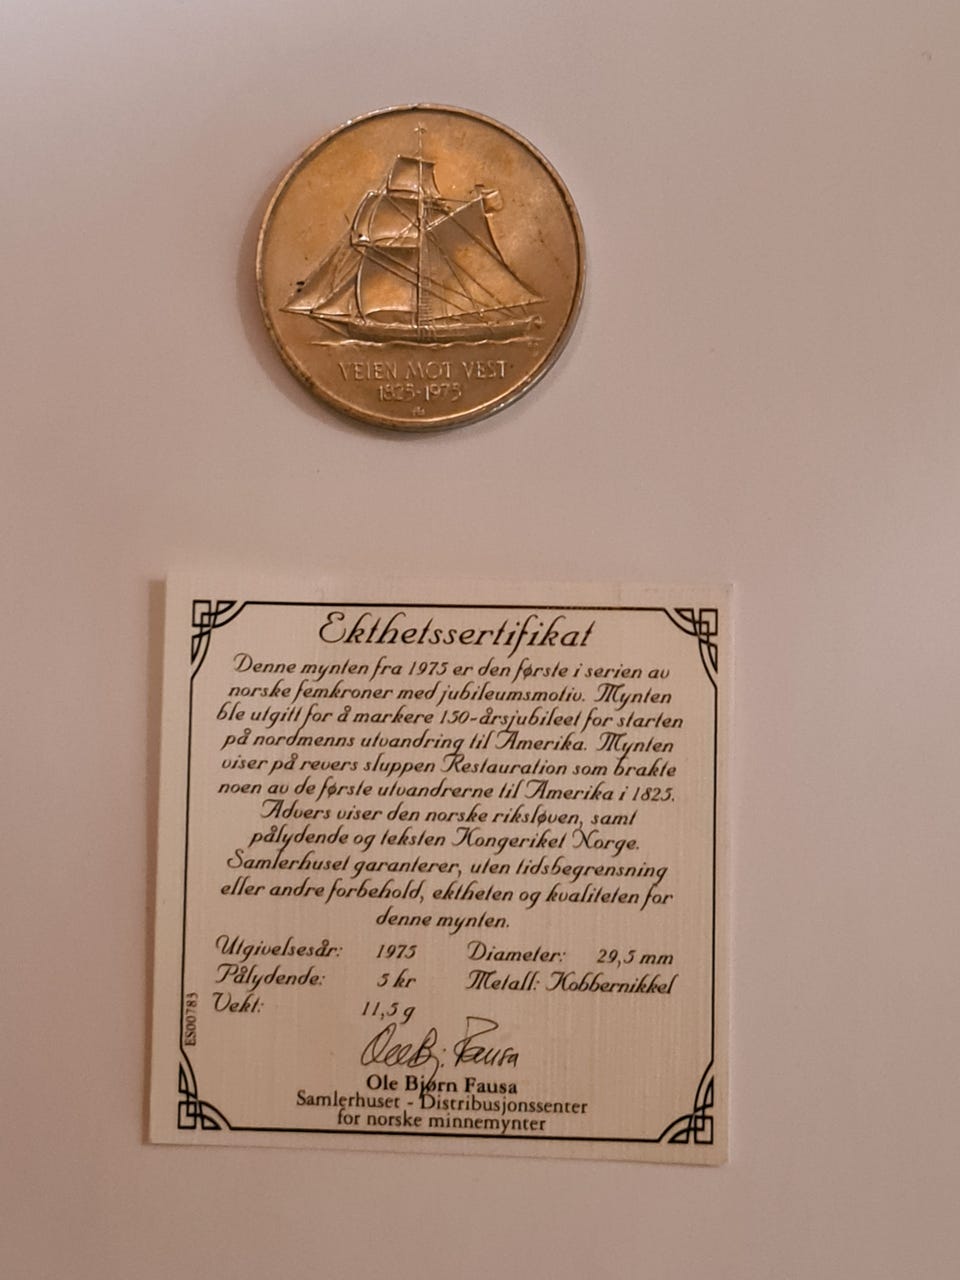 VEIEN MOT VEST
1825-1975
Ekthetssertifikat
Denne mynten fra 1975 er den første i serien av
norske femkroner med jubileumsmotiv. Mynten
ble utgitt for å markere 150-årsjubileet for starten
på nordmenns utvandring til Amerika. Mynten
viser på revers sluppen Restauration som brakte
noen av de første utvandrerne til Amerika i 1825.
Advers viser den norske riksløven, samt
pålydende og teksten Kongeriket Norge.
Samlerhuset garanterer, uten tidsbegrensning
eller andre forbehold, ektheten og kvaliteten for
denne mynten.
Utgivelsesår: 1975 Diameter: 29,5 mm
Pålydende: 5 kr Metall: Kobbernikkel
Vekt: 11,5 g
ES00783
Ole Bj. Fausa
Ole Bjørn Fausa
Samlerhuset - Distribusjonssenter
for norske minnemynter